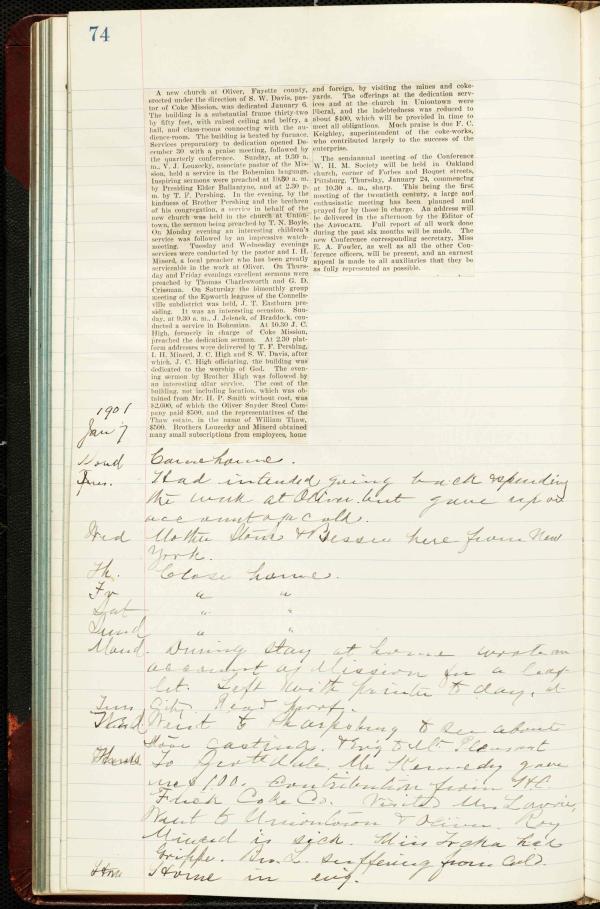 74
A new church at Oliver, Fayette county,
erected under the direction of S. W. Davis, pas-
tor of Coke Mission, was dedicated January 6.
The building is a substantial frame thirty-two
by fifty feet, with raised ceiling and belfry, a
hall, and class-rooms connecting with the au-
dience-room. The building is heated by furnace.
Services preparatory to dedication opened De-
cember 30 with a praise meeting, followed by
the quarterly conference. Sunday, at 9.30 a.
m., V. J. Louzecky, associate pastor of the Mis-
sion, held a service in the Bohemian language.
Inspiring sermons were preached at 10.30 a. m.
by Presiding Elder Ballantyne, and at 2.30 p.
m. by T. F. Pershing. In the evening, by the
kindness of Brother Pershing and the brethren
of his congregation, a service in behalf of the
new church was held in the church at Union-
town, the sermon being preached by T. N. Boyle.
On Monday evening an interesting children's
service was followed by an impressive watch-
meeting. Tuesday and Wednesday evenings
services were conducted by the pastor and I. H.
Minerd, a local preacher who has been greatly
serviceable in the work at Oliver. On Thurs-
day and Friday evenings excellent sermons were
preached by Thomas Charlesworth and G. D.
Crissman. On Saturday the bimonthly group
meeting of the Epworth leagues of the Connells-
ville subdistrict was held, J. T. Eastburn pre-
siding. It was an interesting occasion. Sun-
day, at 9.30 a. m., J. Jelenek, of Braddock, con-
ducted a service in Bohemian. At 10.30 J. C.
High, formerly in charge of Coke Mission,
preached the dedication sermon. At 2.30 plat-
form addresses were delivered by T. F. Pershing,
I. H. Minerd, J. C. High and S. W. Davis, after
which, J. C. High officiating, the building was
dedicated to the worship of God. The even-
ing sermon by Brother High was followed by
an interesting altar service. The cost of the
building, not including location, which was ob-
tained from Mr. H. P. Smith without cost, was
$2,600, of which the Oliver Snyder Steel Com-
pany paid $500, and the representatives of the
Thaw estate, in the name of William Thaw,
$500. Brothers Louzecky and Minerd obtained
many small subscriptions from employees, home
and foreign, by visiting the mines and coke-
yards. The offerings at the dedication serv-
ices and at the church in Uniontown were
liberal, and the indebtedness was reduced to
about $400, which will be provided in time to
meet all obligations. Much praise is due F. C.
Keighley, superintendent of the coke-works,
who contributed largely to the success of the
enterprise.
The semiannual meeting of the Conference
W. H. M. Society will be held in Oakland
church, corner of Forbes and Boquet streets,
Pittsburg, Thursday, January 24, commencing
at 10.30 a. m., sharp. This being the first
meeting of the twentieth century, a large and
enthusiastic meeting has been planned and
prayed for by those in charge. An address will
be delivered in the afternoon by the Editor of
the ADVOCATE. Full report of all work done
during the past six months will be made. The
new Conference corresponding secretary, Miss
E. A. Fowler, as well as all the other Con-
ference officers, will be present, and an earnest
appeal is made to all auxiliaries that they be
as fully represented as possible.
1901
Jan 7
Came home.
Had intended going back & spending
the week at Oliver but gave up on
account of a cold.
Wed Mother Stone & Bessie here from New
York.
Th. Close home.
Fr " "
Sat " "
Sund " "
Mond. During stay at home wrote an
account of Mission for a leaf
let. Left with printer to day, at
City. Read proof.
Went to Sharpsburg to see about
stove castings. & to Mt Pleasant
To Scottdale. Mr Kennedy gave
me $100. contribution from H.C.
Frick Coke Co. Visited Mrs Lavrie,
Went to Uniontown & Oliver. Roy
Minerd is sick. Miss had
Grippe. Bro. L. suffering from cold.
Home in evg.